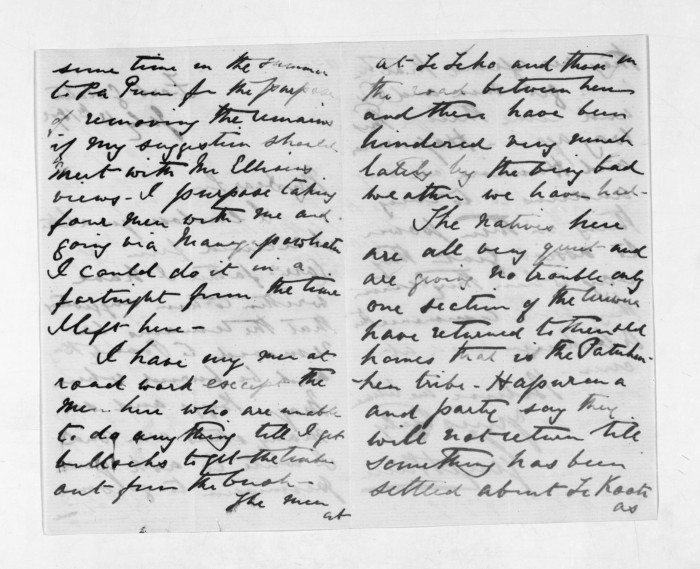 some time in the summer
to Pa Puni for the purpose
of removing the remains
if my suggestion should
meet with Mr Ellisons
views - I purpose taking
four men with me and
going via Mangapowhatu
I could do it in a
fortnight from the time
I left here -
I have my men at
road work except the
men here who are unable
to do anything till I get
bullocks to get the timber
out from the bush -
The men
at
at Te Teko and those on
the road between here
and there have been
hindered very much
lately by the very bad
weather we have had -
The natives here
are all very quiet and
are giving no trouble only
one section of the
have returned to their old
homes that is the Patuheu
heu tribe - Hapurona
and party say they
will not return till
something has been
settled about Te Kooti
as